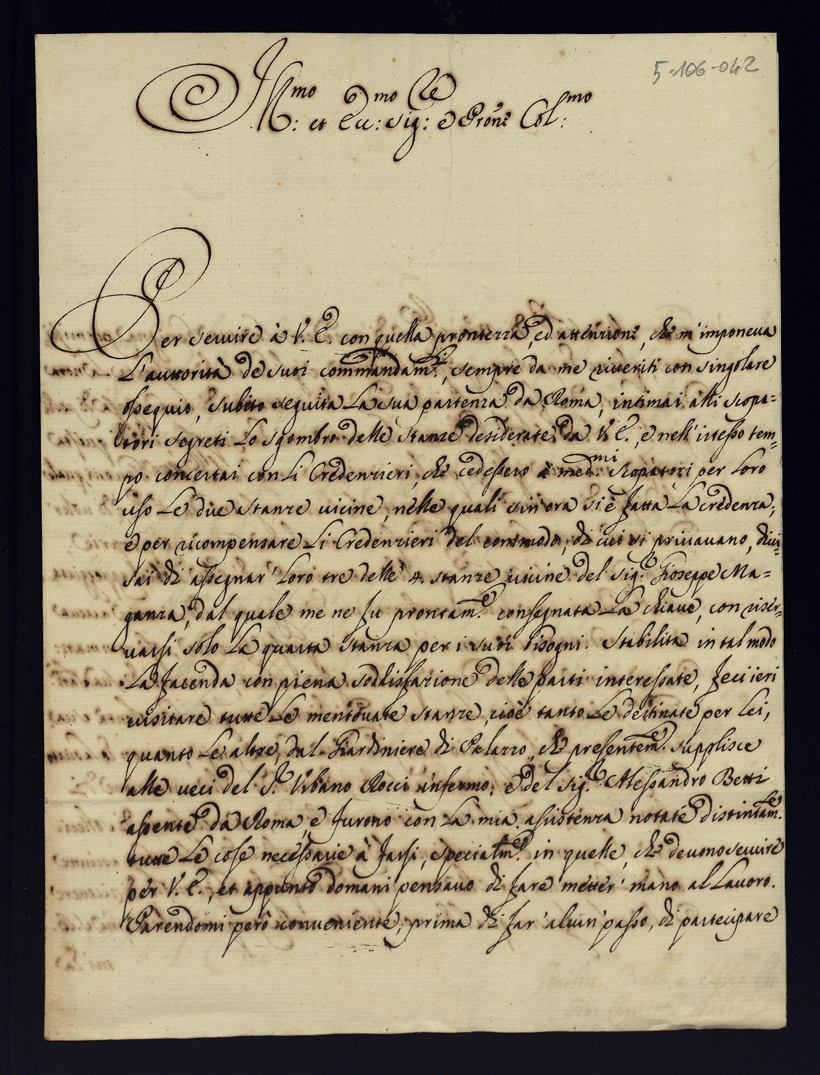 5-106-042
Ill:mo et Ecc:mo Sig:re e Pron:e Col:mo
Per servire à V. E. con quella prontezza, ed attenzione, che m'imponeva
l'auttorità de suoi commandam.ti, sempre da me riveriti con singolare
ossequio, subito seguita la sua partenza da Roma, intimai alli scopa=
tori segreti lo sgombro delle stanze desiderate da V. E., e nell'istesso tem=
po concertai con li Credenzieri, che cedessero à med.mi scopatori per loro
uso le due stanze vicine, nelle quali sin'ora si è fatta la credenza;
e per ricompensare li Credenzieri del commodo, di cui si privavano, divi=
sai di assegnar loro tre delle 4. stanze vicine del Sig.r Gioseppe Ma=
ganza, dal quale me ne fu prontam.te consegnata la chiave, con riser=
varsi solo la quarta stanza per i suoi bisogni. Stabilita in tal modo
la facenda con piena sodisfazione delle parti interessate, feci ieri
visitare tutte le mentovate stanze, cioè tanto le destinate per lei,
quanto le altre, dal Giardiniere di Palazzo, che presentem.te supplisce
alle veci del S.r Urbano Rocci infermo, e del Sig.r Alessandro Betti
assente da Roma, e furono con la mia assistenza notate distintam.te
tutte le cose necessarie à farsi, specialm.te in quelle, che devono servire
per V. E., et appunto domani pensavo di fare metter' mano al lavoro.
Parendomi però conveniente, prima di far' alcun' passo, di partecipare